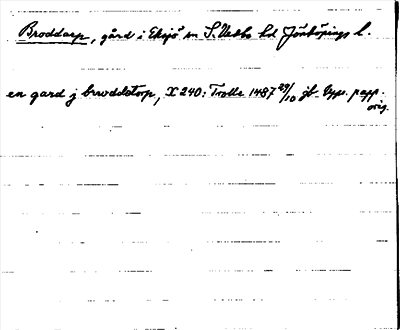 Broddarp, gård i Eksjö sn S. Vedbo hd Jönköpings l.
en gard j brwddetorp, X 240: Trolle 1487 29/10 jb. Upps. papp.
orig.